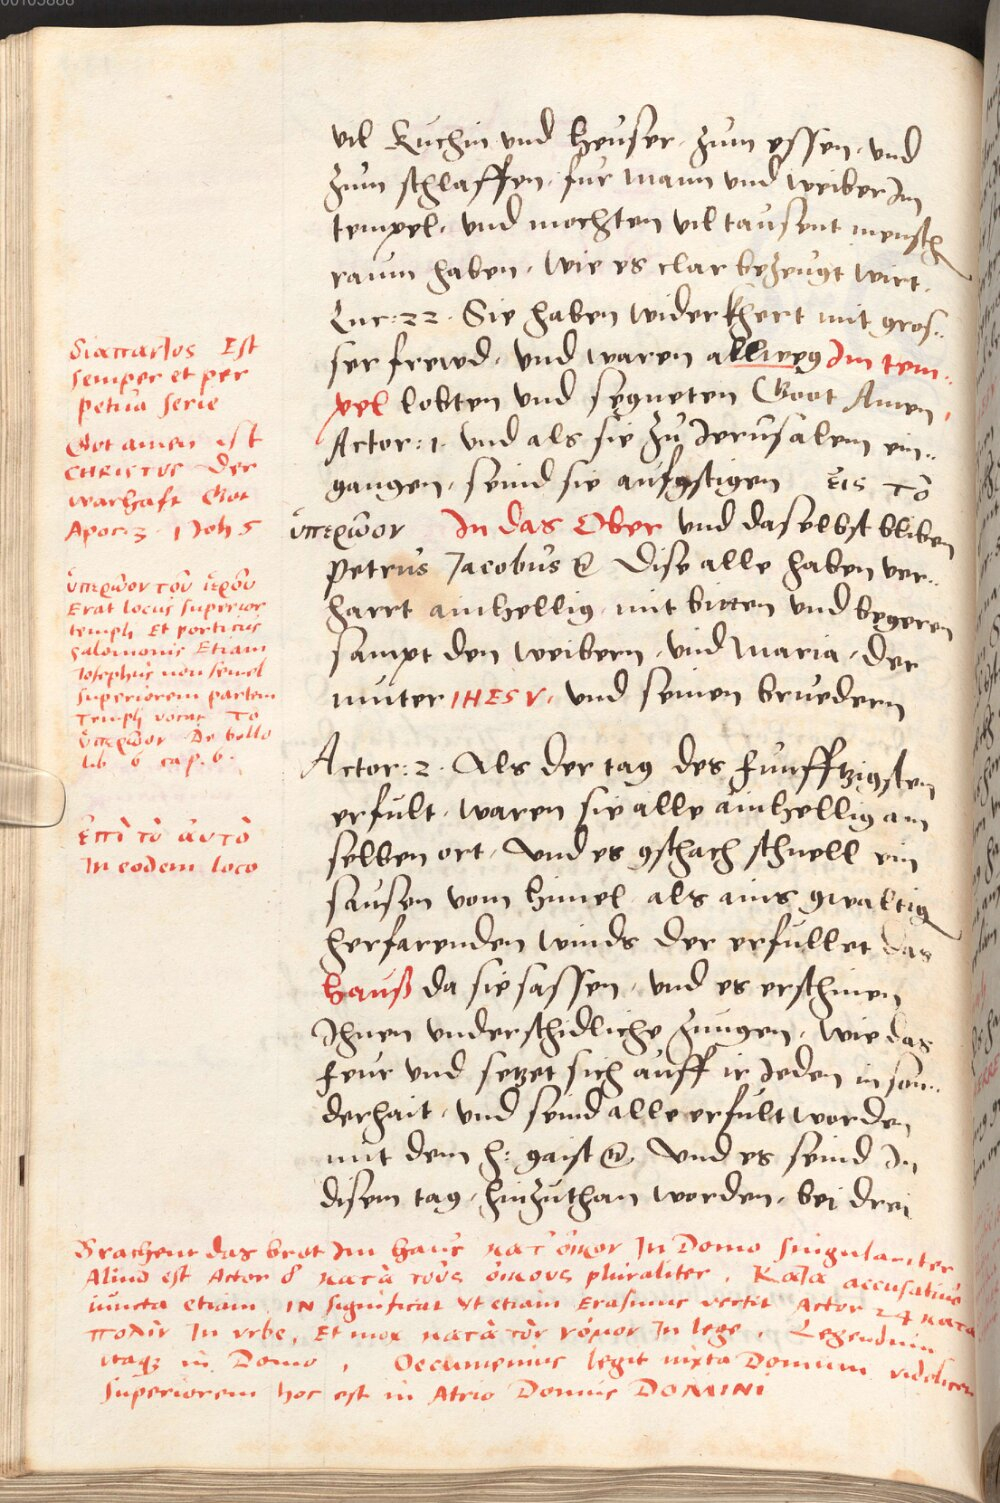 00103888
vil Kuchin vnd heuser, zum essen, vnd
zum schlaffen, fur mann vnd weiber Im
tempel, vnd mochten vil tausent mensch
raum haben, wie es clar bezeugt wirt,
Luc: 22. Sie haben widerkhert mit gros-
ser frewd, vnd waren allweg Im tem-
pel lobten vnd segneten Goot Amen,
Actor: 1. vnd als sie zu Jerusalem ein-
gangen, seind sie aufgstigen εἰς τὸ
ὑπερῶον In das Ober vnd daselbst bliben
Petrus Jacobus &c Dise alle haben ver-
harrt ainhellig, mit bitten vnd begeren
sampt den weibern, vnd Maria, der
muter IHESV, vnd seinen bruedern
Actor: 2. Als der tag des funfftzigsten
erfult, waren sie alle ainhellig am
selben ort, Vnd es gschach schnell ein
sausen vom himel, als ains gwaltig
herfarenden winds der erfullet das
hauß da sie sassen, vnd es erschinen
Ihnen vnderschidliche zungen, wie das
feur vnd setzet sich auff ir Jeden in son-
derhait, vnd seind alle erfult worden
mit dem h: gaist &c, Vnd es seind In
disem tag, hinzuthan worden, bei drei
Est
semper et per
petua serie
Got amen ist
CHRISTVS der
warhaft Got
Apoc: 3. 1 Joh 5
ὑπερῶον τοῦ ἱεροῦ
Erat locus superior
templi Et porticus
Salomonis Etiam
Iosephus non semel
superiorem partem
Templi vocat τὸ
ὑπερῶον De bello
lib 6 cap. 6.
ἐπὶ τὸ αὐτὸ
In eodem loco
Brachent das brot Im haus κατ᾽ οἶκον In Domo singulariter
Aliud est Actor 8 κατὰ τοὺς οἴκους pluraliter, Κατὰ accusativis
iuncta etiam IN significat vt etiam Erasmus vertit Actor 24 κατα
πολιν In vrbe, Et mox κατὰ τὸν νόμον In lege, Legendum
itaque in Domo, Oecumenius legit iuxta Domum videlicet
superiorem hoc est in Atrio Domus DOMINI